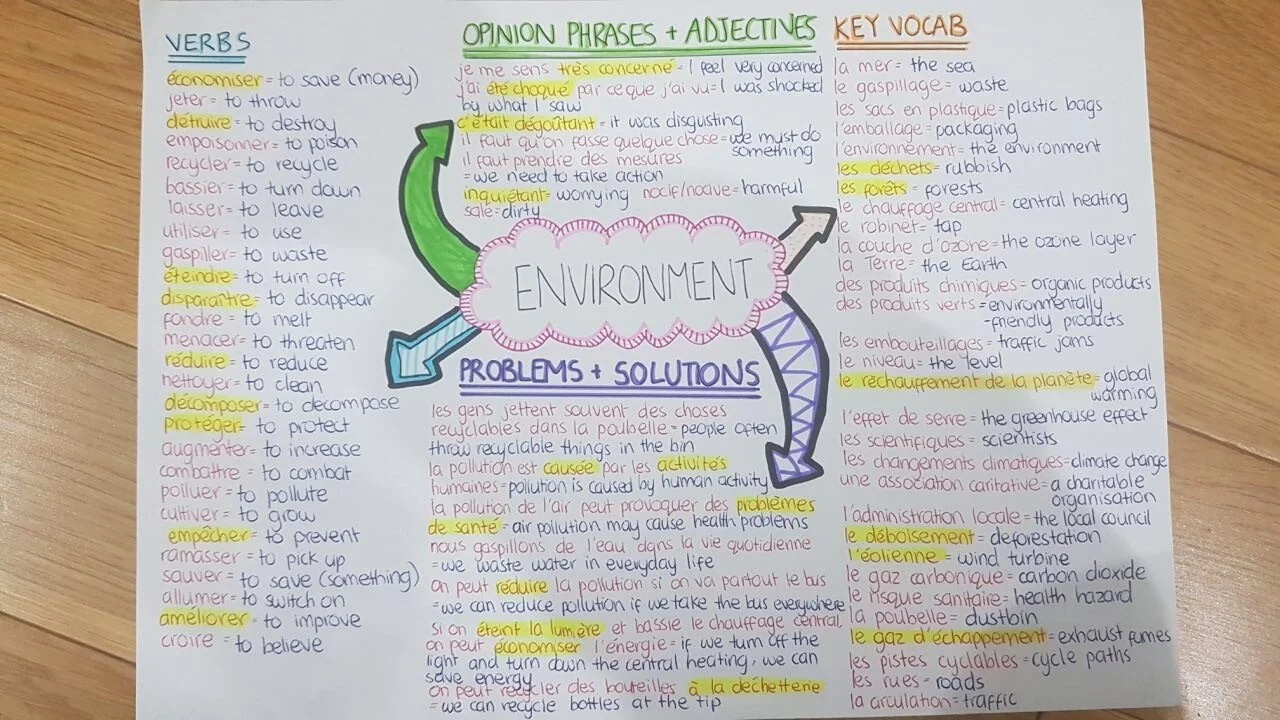 VERBS
économiser = to save (money)
jeter = to throw
détruire = to destroy
empoisonner = to poison
recycler = to recycle
bassier = to turn down
laisser = to leave
utiliser = to use
gaspiller = to waste
éteindre = to turn off
disparaître = to disappear
fondre = to melt
menacer = to threaten
réduire = to reduce
nettoyer = to clean
décomposer = to decompose
protéger = to protect
augmenter = to increase
combattre = to combat
polluer = to pollute
cultiver = to grow
empêcher = to prevent
ramasser = to pick up
sauver = to save (something)
allumer = to switch on
améliorer = to improve
croire = to believe
OPINION PHRASES + ADJECTIVES
je me sens très concerné = I feel very concerned
j'ai été choqué par ce que j'ai vu = I was shocked
by what I saw
c'était dégoûtant = it was disgusting
il faut qu'on fasse quelque chose = we must do
something
il faut prendre des mesures
= we need to take action
inquiétant = worrying nocif/noave = harmful
sale = dirty
ENVIRONMENT
PROBLEMS + SOLUTIONS
les gens jettent souvent des choses
recyclables dans la poubelle = people often
throw recyclable things in the bin
la pollution est causée par les activités
humaines = pollution is caused by human activity
la pollution de l'air peut provoquer des problèmes
de santé = air pollution may cause health problems
nous gaspillons de l'eau dans la vie quotidienne
= we waste water in everyday life
on peut réduire la pollution si on va partout le bus
= we can reduce pollution if we take the bus everywhere
si on éteint la lumière et bassie le chauffage central,
on peut économiser l'énergie = if we turn off the
light and turn down the central heating, we can
save energy
on peut recycler des bouteilles à la déchetterie
= we can recycle bottles at the tip
KEY VOCAB
la mer = the sea
le gaspillage = waste
les sacs en plastique = plastic bags
l'emballage = packaging
l'environnement = the environment
les déchets = rubbish
les forêts = forests
le chauffage central = central heating
le robinet = tap
la couche d'ozone = the ozone layer
la Terre = the Earth
des produits chimiques = organic products
des produits verts = environmentally
-friendly products
les embouteillages = traffic jams
le niveau = the level
le réchauffement de la planète = global
warming
l'effet de serre = the greenhouse effect
les scientifiques = scientists
les changements climatiques = climate change
une association caritative = a charitable
organisation
l'administration locale = the local council
le déboisement = deforestation
l'éolienne = wind turbine
le gaz carbonique = carbon dioxide
le risque sanitaire = health hazard
la poubelle = dustbin
le gaz d'échappement = exhaust fumes
les pistes cyclables = cycle paths
les rues = roads
la circulation = traffic